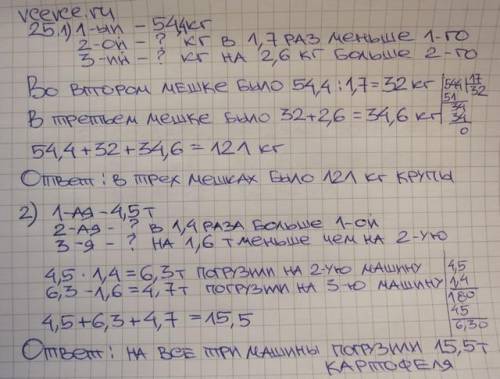 vcevce.ru
25.1) 1-ый - 54,4 кг
2-ой - ? кг в 1,7 раз меньше 1-го
3-ий - ? кг на 2,6 кг больше 2-го
Во втором мешке было 54,4 : 1,7 = 32 кг
544 | 17
51 32
34
34
0
В третьем мешке было 32 + 2,6 = 34,6 кг
54,4 + 32 + 34,6 = 121 кг
Ответ: в трех мешках было 121 кг крупы
2) 1-ая - 4,5 т
2-ая - ? в 1,4 раза больше 1-ой
3-я - ? на 1,6 т меньше чем на 2-ую
4,5 · 1,4 = 6,3 т погрузили на 2-ую машину
6,3 - 1,6 = 4,7 т погрузили на 3-ю машину
4,5
1,4
180
45
6,30
4,5 + 6,3 + 4,7 = 15,5
Ответ: на все три машины погрузили 15,5 т
картофеля